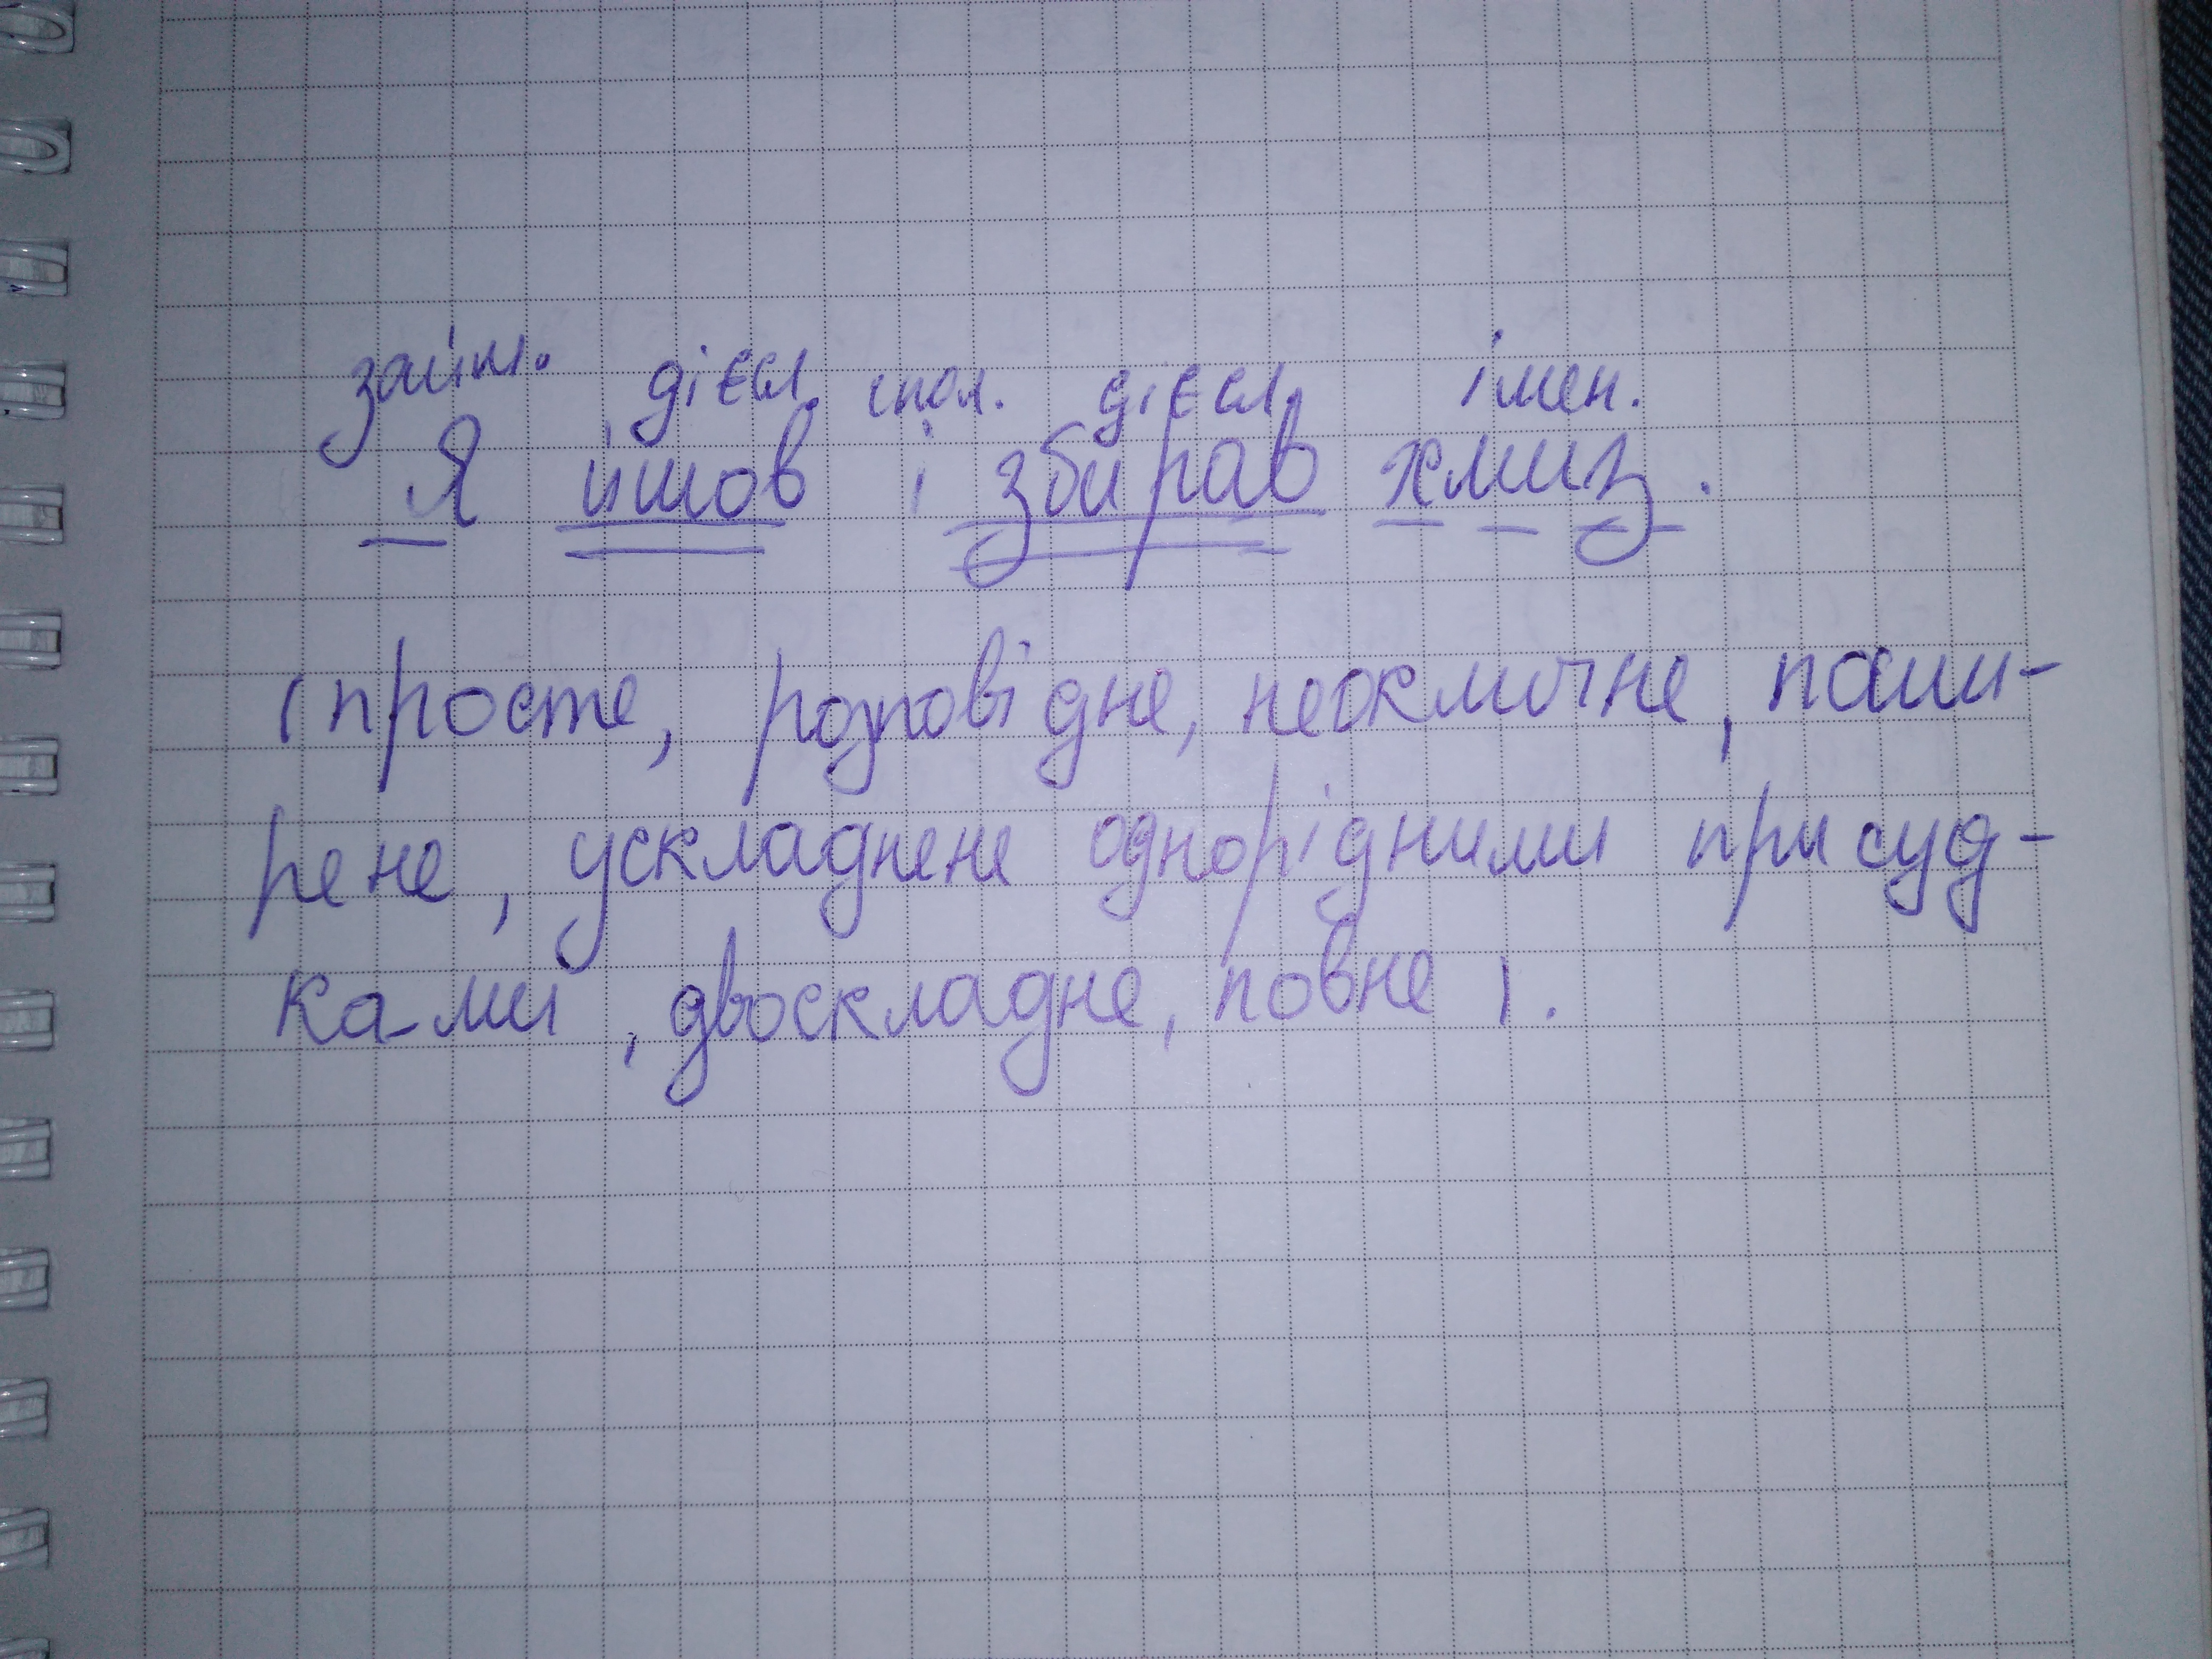 займ. дієсл. спол. дієсл. імен.
Я йшов і збирав хмиз.
(просте, розповідне, неокличне, поши-
рене, ускладнене однорідними присуд-
ка-ми, двоскладне, повне).